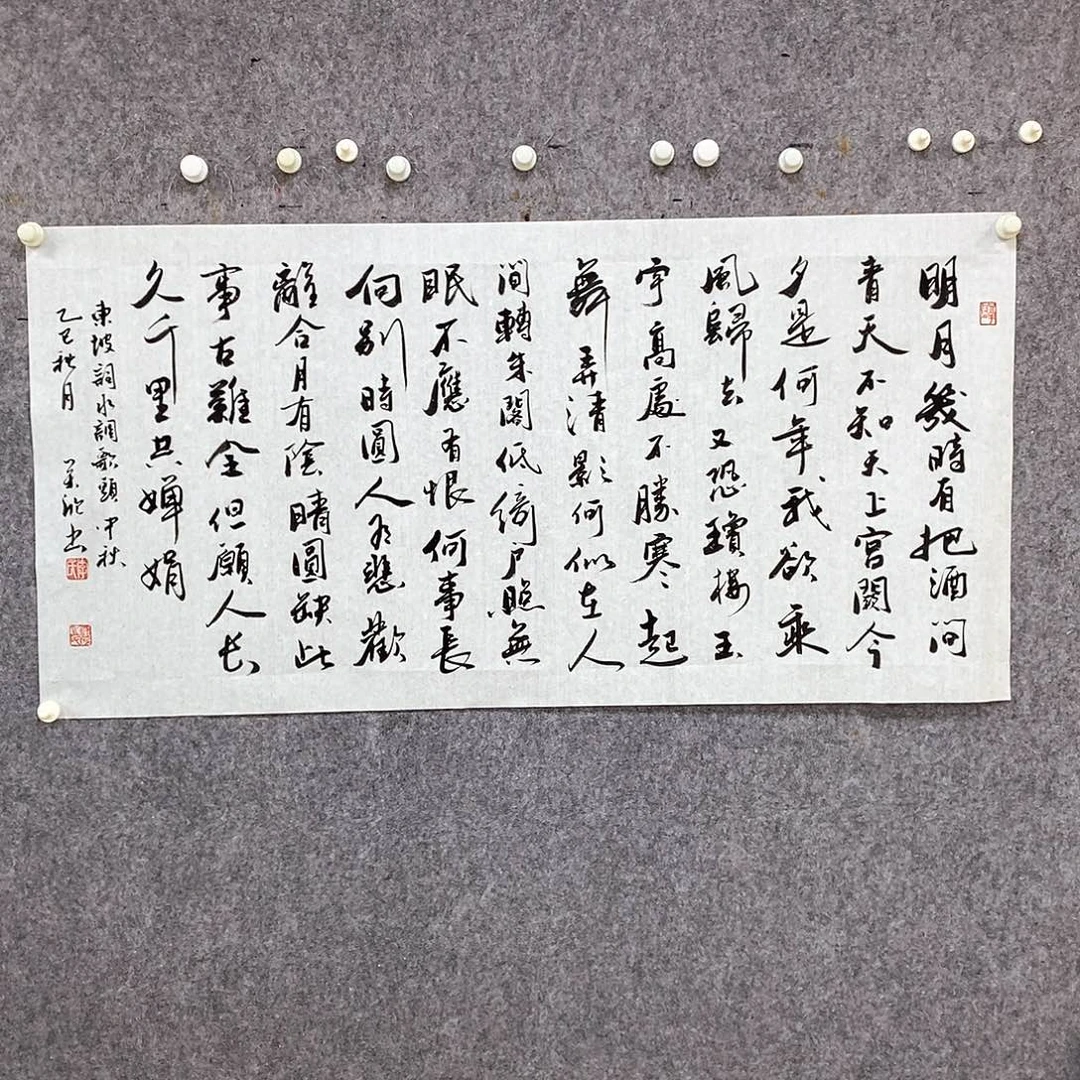 明月幾時有把酒问
青天不知天上宫闕今
夕是何年我欲乘
風歸去又恐瓊楼玉
宇高處不勝寒起
舞弄清影何似在人
间轉朱閣低绮户照無
眠不應有恨何事長
向别時圓人有悲歡
離合月有陰晴圓缺此
事古難全但願人长
久千里共嬋娟
東坡詞水調歌頭中秋
乙巳秋月 书